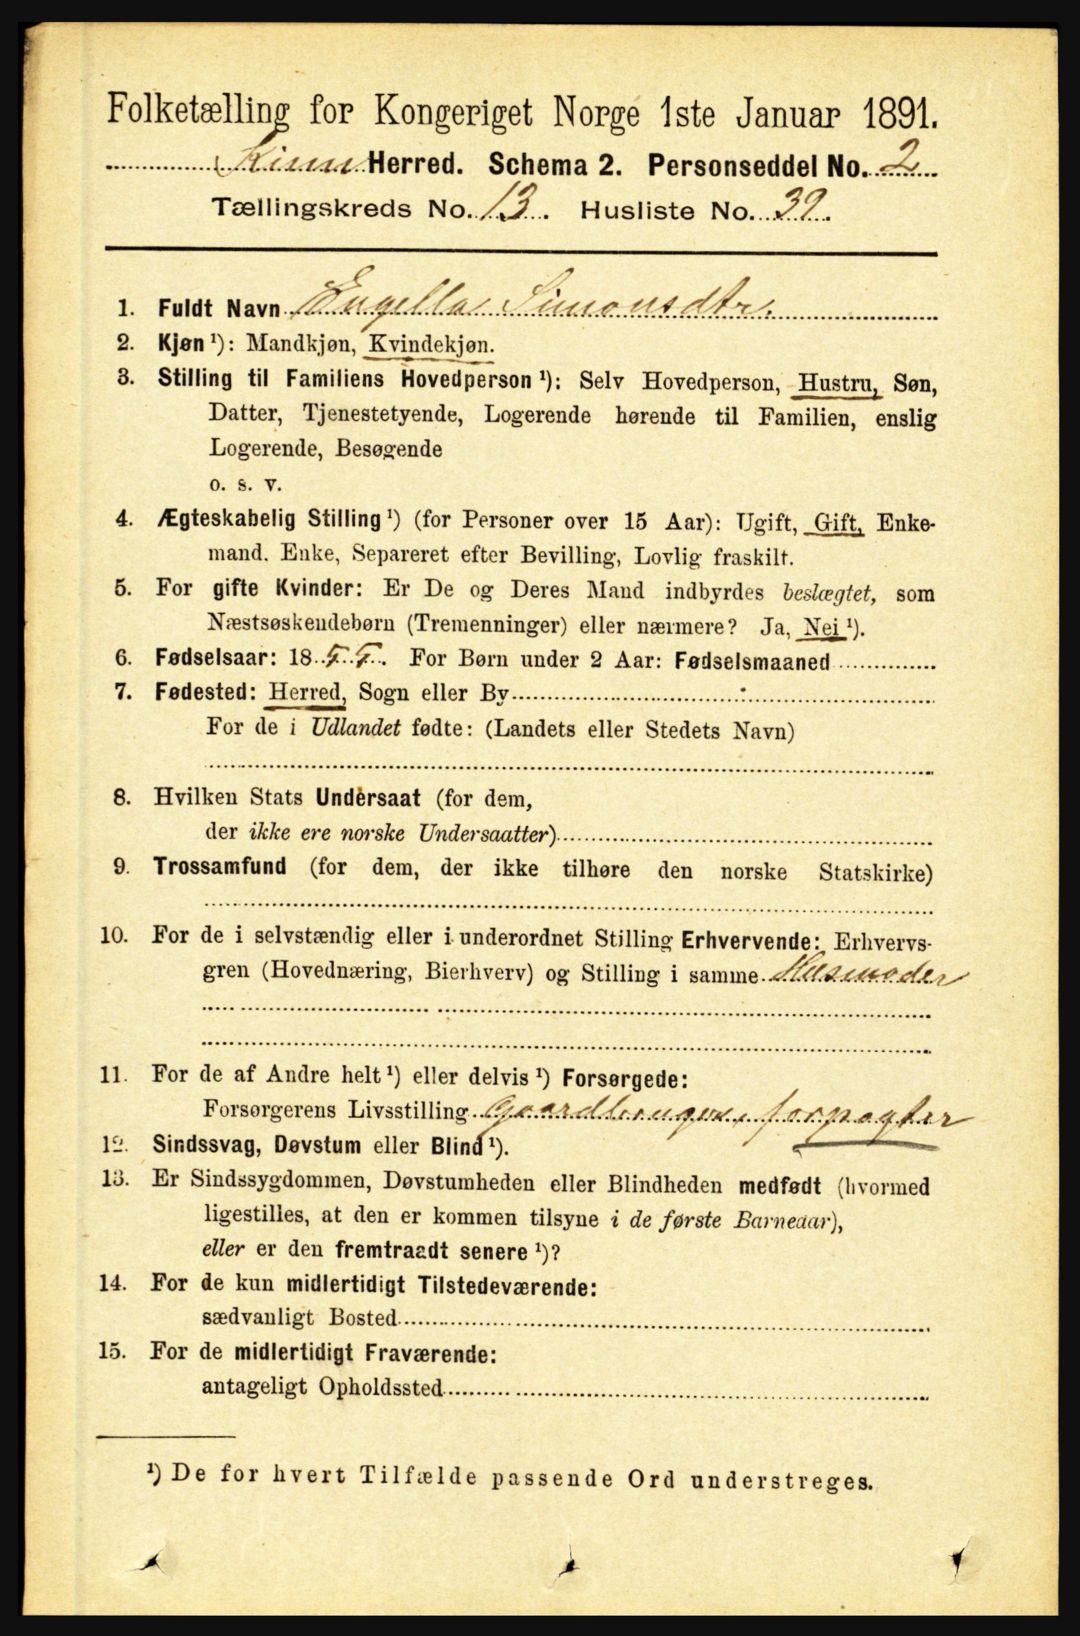 Folketælling for Kongeriget Norge 1ste Januar 1891.
Kinn Herred. Schema 2. Personseddel No. 2
Tællingskreds No. 13. Husliste No. 39.
1. Fuldt Navn Engella Simonsdtr.
2. Kjøn ¹): Mandkjøn, Kvindekjøn.
3. Stilling til Familiens Hovedperson ¹): Selv Hovedperson, Hustru, Søn,
Datter, Tjenestetyende, Logerende hørende til Familien, enslig
Logerende, Besøgende
o. s. v.
4. Ægteskabelig Stilling ¹) (for Personer over 15 Aar): Ugift, Gift, Enke-
mand. Enke, Separeret efter Bevilling, Lovlig fraskilt.
5. For gifte Kvinder: Er De og Deres Mand indbyrdes beslægtet, som
Næstsøskendebørn (Tremenninger) eller nærmere? Ja, Nei ¹).
6. Fødselsaar: 1855. For Børn under 2 Aar: Fødselsmaaned
7. Fødested: Herred, Sogn eller By
For de i Udlandet fødte: (Landets eller Stedets Navn)
8. Hvilken Stats Undersaat (for dem,
der ikke ere norske Undersaatter)
9. Trossamfund (for dem, der ikke tilhøre den norske Statskirke)
10. For de i selvstændig eller i underordnet Stilling Erhvervende: Erhvervs-
gren (Hovednæring, Bierhverv) og Stilling i samme Husmoder
11. For de af Andre helt ¹) eller delvis ¹) Forsørgede:
Forsørgerens Livsstilling Gaardbruger, forpagter
12. Sindssvag, Døvstum eller Blind ¹).
13. Er Sindssygdommen, Døvstumheden eller Blindheden medfødt (hvormed
ligestilles, at den er kommen tilsyne i de første Barneaar),
eller er den fremtraadt senere ¹)?
14. For de kun midlertidigt Tilstedeværende:
sædvanligt Bosted
15. For de midlertidigt Fraværende:
antageligt Opholdssted
¹) De for hvert Tilfælde passende Ord understreges.